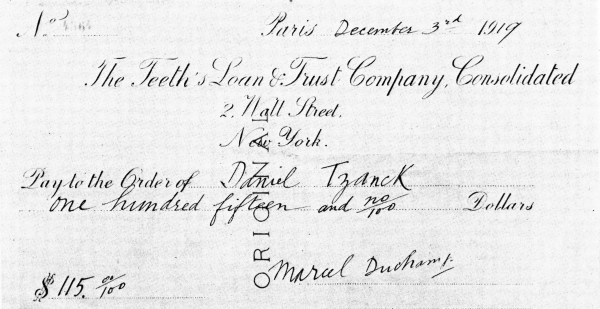 No Paris December 3rd 1919
The Teeth's Loan & Trust Company, Consolidated
2, Wall Street.
New York.
Pay to the Order of Daniel Tzanck
one hundred fifteen and no/100 Dollars
$ 115. /100 Marcel Duchamp
ORIGINAL